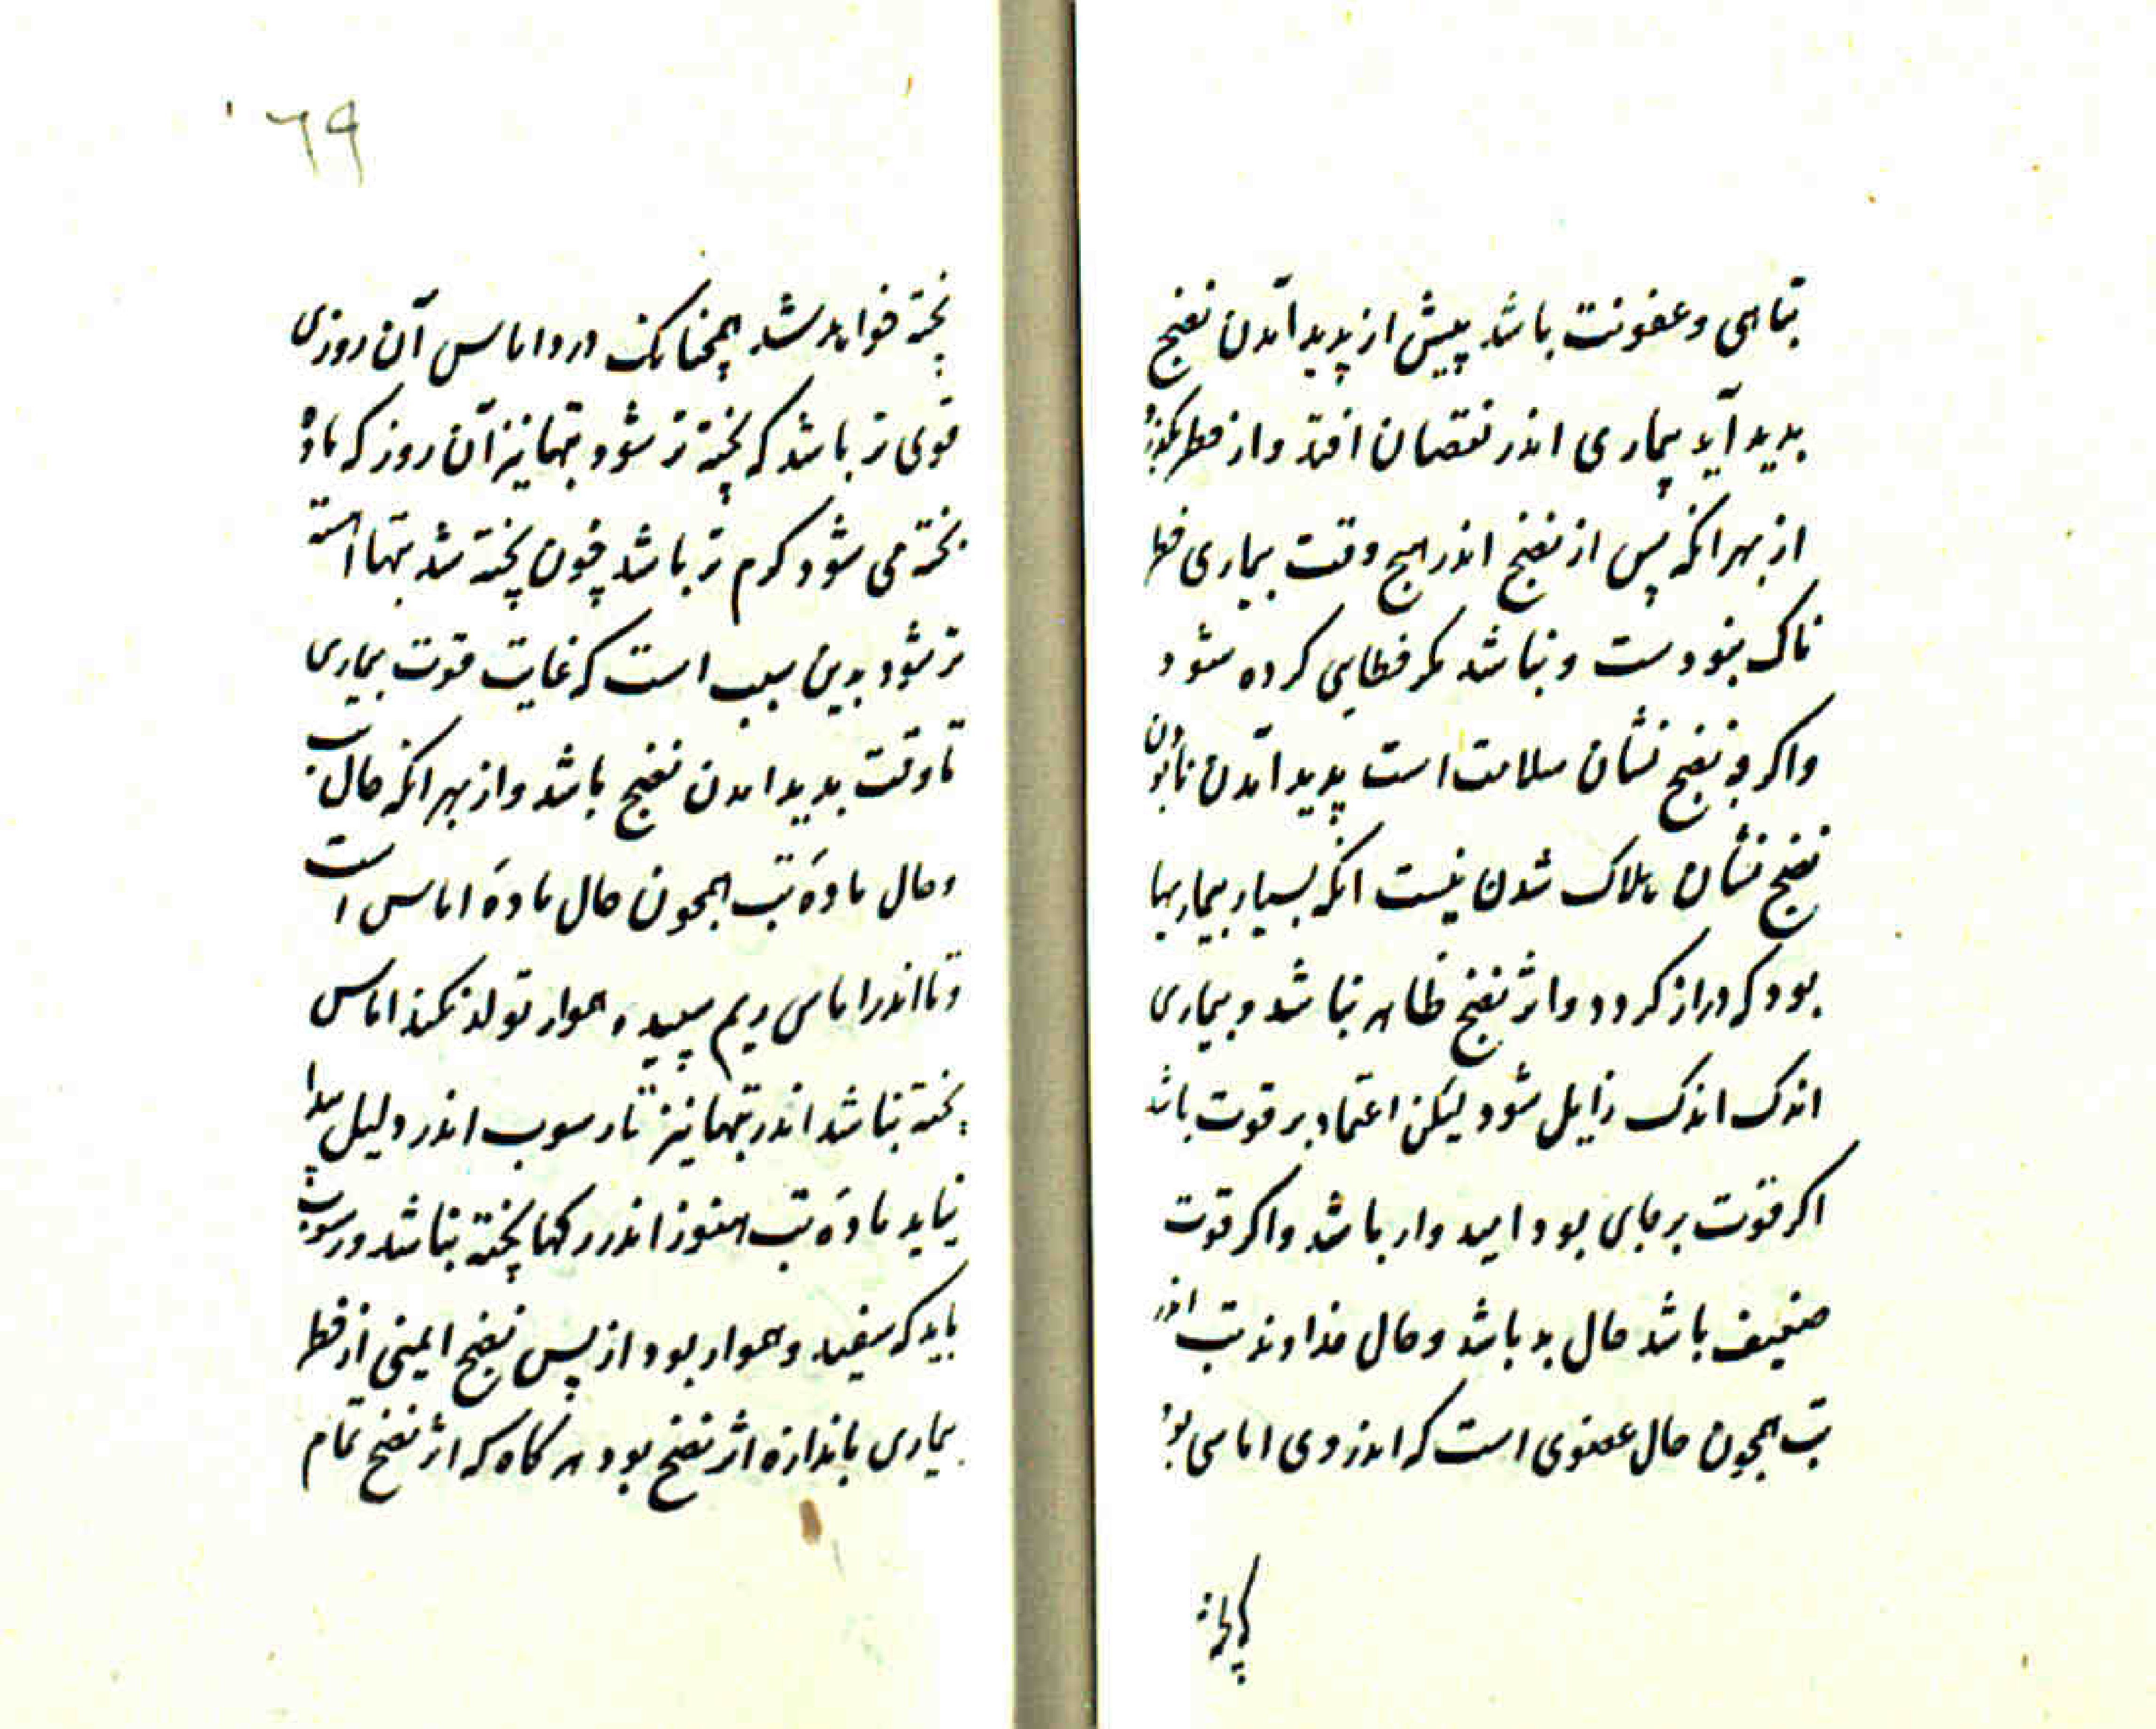 تباهی و عفونت باشد پیش از پدید آمدن نضج
بدید آید بیماری اندر نقصان افتد و از خطر بگذرد
از بهر انکه پس از نضج اندر هیچ وقت بیماری خطر
ناک نبودست و نباشد مکر خطایی کرده شود
واکرچه نضج نشان سلامت است پدید آمدن نابودن
نضج نشان هلاک شدن نیست انکه بسیار بیماریها
بود که دراز کردد و اثر نضج ظاهر نباشد و بیماری
اندک اندک زایل شود لیکن اعتماد بر قوت باشد
اکر قوت بر جای بود امید وار باشد واکر قوت
ضعیف باشد حال بد باشد و حال خداوند تب اندر
تب همچون حال عضوی است که اندر وی اماسی بود
که پخته
٦٩
پخته خواهد شد همچنانک درد اماس آن روزی
قوی تر باشد که پخته تر شود تبها نیز آن روز که ماده
پخته می شود کرم تر باشد چون پخته شد تبها اهسته
تر شود بدین سبب است که غایت قوت بیماری
تا وقت بدید امدن نضج باشد و از بهر انکه حال تب
و حال مادهٔ تب همچون حال مادهٔ اماس است
و تا اندر اماس ریم سپید و هموار تولد نکند اماس
پخته نباشد اندر تبها نیز تا رسوب اندر دلیل پیدا
نیاید مادهٔ تب هنوز اندر رکها پخته نباشد و رسوب
باید که سفید و هموار بود از پس نضج ایمنی از خطر
بیماری باندازه اثر نضج بود هر کاه که اثر نضج تمام